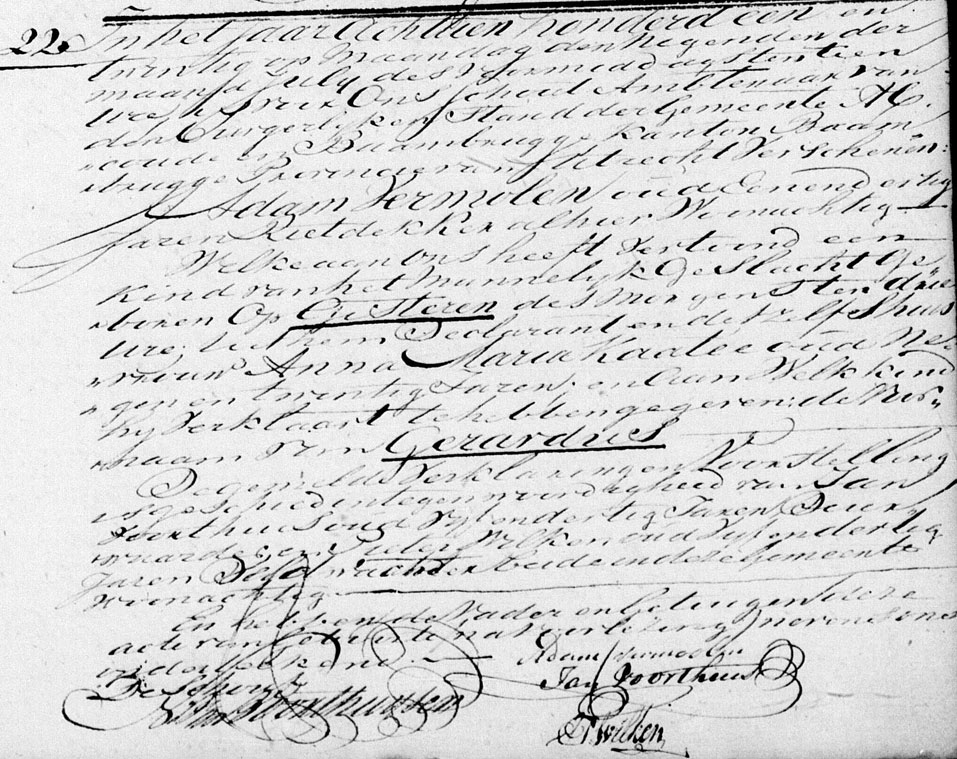 22. In het Jaar Achttien honderd een en
twintig op Maandag den negenden der
maand July des voormiddags ten tien
ure is voor Ons Schout Ambtenaar van
den Burgerlyken Stand der Gemeente Ab,,
coude en Baambrugge Kanton Baam,,
brugge Provincie van Utrecht Verschenen:
Adam Vermolen oud Een en dertig
Jaren Rietdekker alhier Woonachtig
Welke aan Ons heeft Vertoond een
Kind van het Mannelyk Geslacht Ge,,
boren Op Gisteren des Morgens ten drie
ure, uit hem Declarant en deszelfs huis,,
vrouw Anna Maria Kaalee oud Ne,,
gen en twintig Jaren, en Aan Welk kind
hy Verklaart te hebben gegeven de Voor,,
naam van Gerardus
De gemelde Verklaring en Voorstelling
is geschied in tegenwoordigheid van Jan
Voorthuis oud Vyf en dertig Jaren
en Pieter Wilken oud en dertig
Jaren Veldwachter beide in deze Gemeente
woonachtig
En hebben de Vader en Getuigen deze
acte van na voorlezing Nevens Ons
onderteekend.
De Schout
Adam Vermoolen
Jan Voorthuis
P Wilken